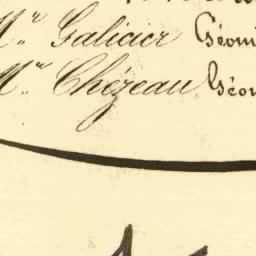 Mr. Galicier Géom
Mr. Chézeau Géom